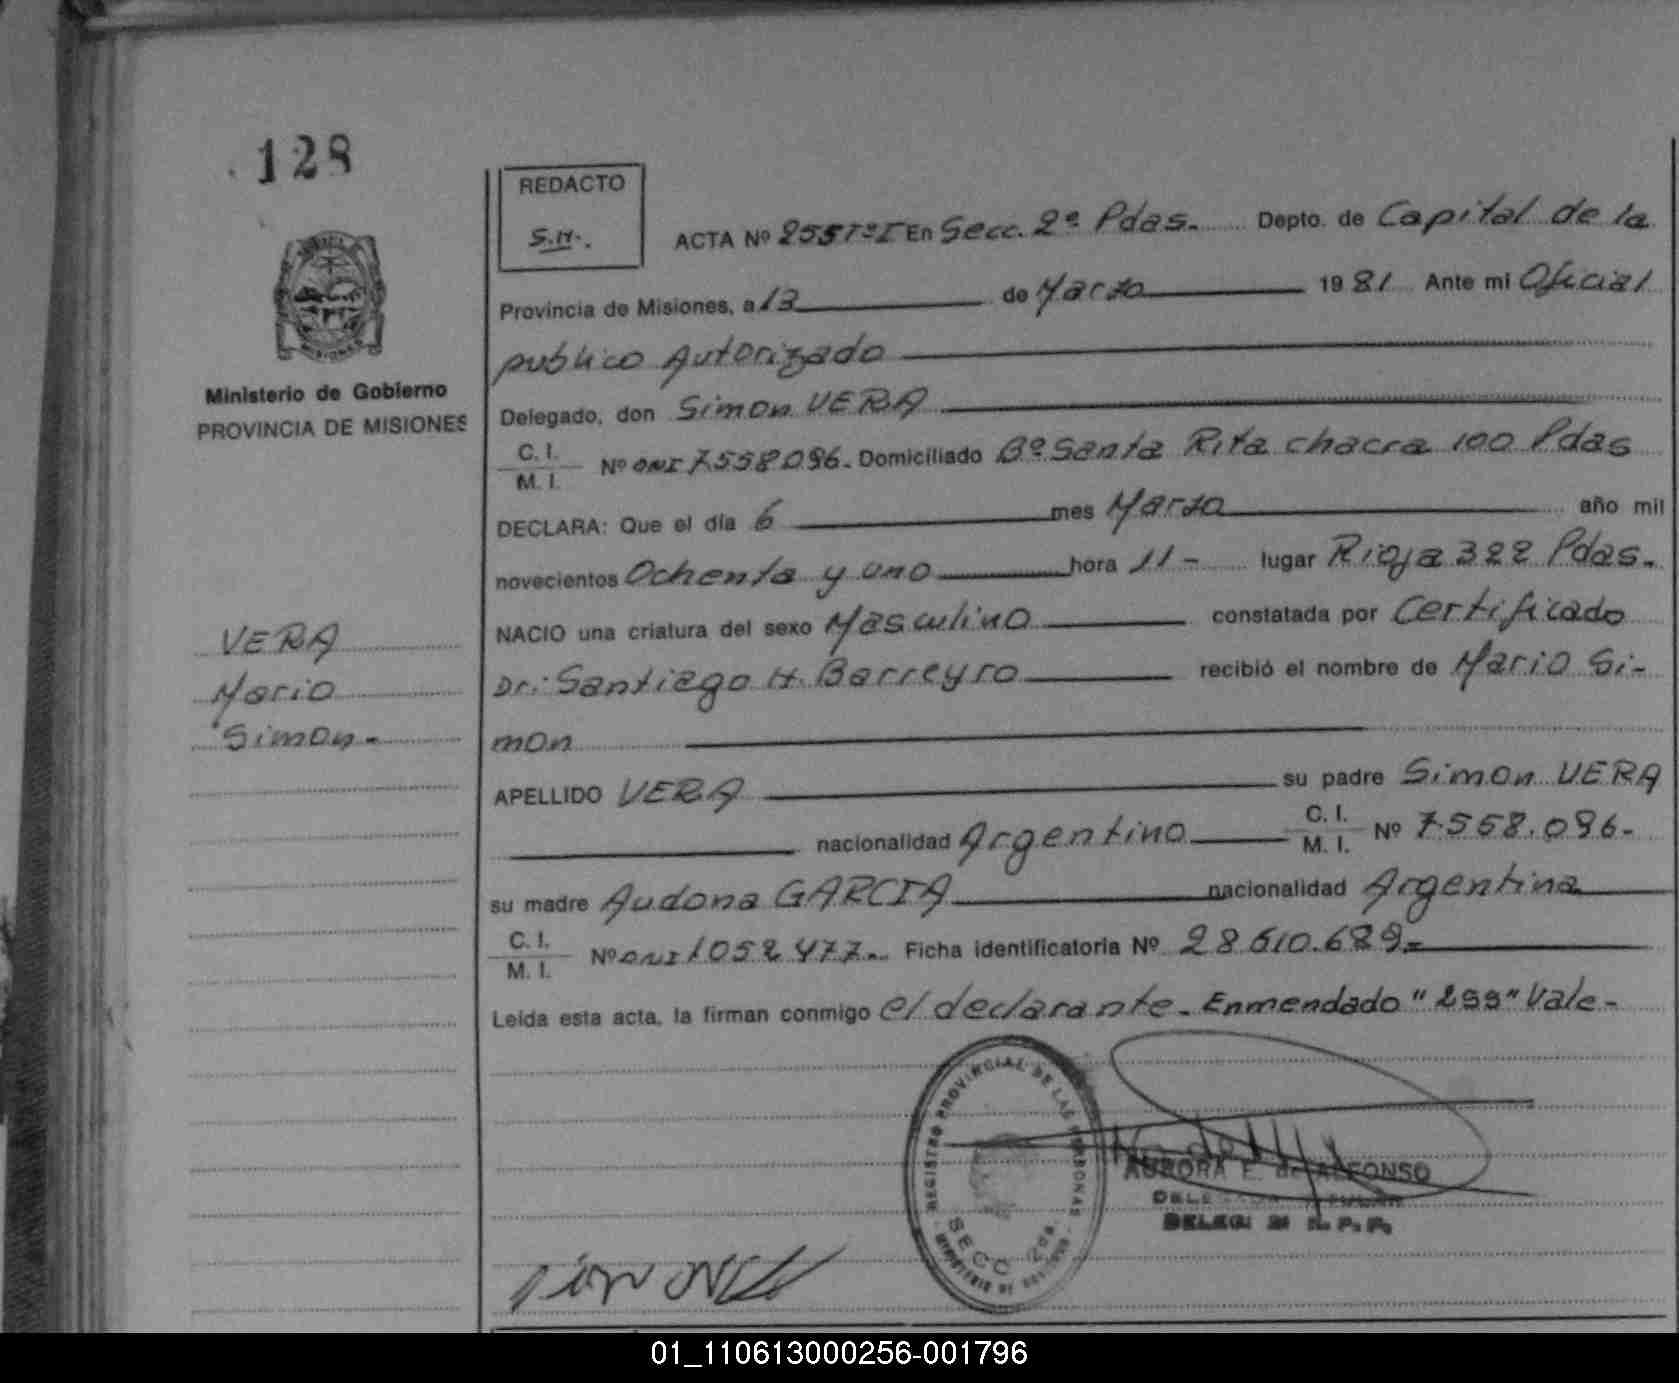 128
REDACTO
S.H.
ACTA Nº 255TºI En Secc. 2º Pdas. Depto. de Capital de la
Provincia de Misiones, a 13 de Marzo 1981 Ante mi Oficial
publico Autorizado
Ministerio de Gobierno
PROVINCIA DE MISIONES
Delegado, don Simon VERA
C. I.
M. I. Nº DNI 7.558.096. Domiciliado Bº Santa Rita chacra 100 Pdas
DECLARA: Que el día 6 mes Marzo año mil
novecientos Ochenta y uno hora 11- lugar Rioja 322 Pdas.
NACIO una criatura del sexo Masculino constatada por Certificado
Dr: Santiago H. Barreyro recibió el nombre de Mario Si-
mon
VERA
Mario
Simon-
APELLIDO VERA su padre Simon VERA
nacionalidad Argentino C. I.
M. I. Nº 7.558.096-
su madre Audona GARCIA nacionalidad Argentina
C. I.
M. I. Nº DNI 1052477- Ficha identificatoria Nº 28.610.689.=
Leída esta acta, la firman conmigo el declarante. Enmendado "255" Vale-
REGISTRO PROVINCIAL DE LAS PERSONAS
SECC 2da.
MINISTERIO DE GOBIERNO
AURORA E. de ALFONSO
DELEGADA TITULAR
DELEG. 2ª R. P. P.
01_110613000256-001796